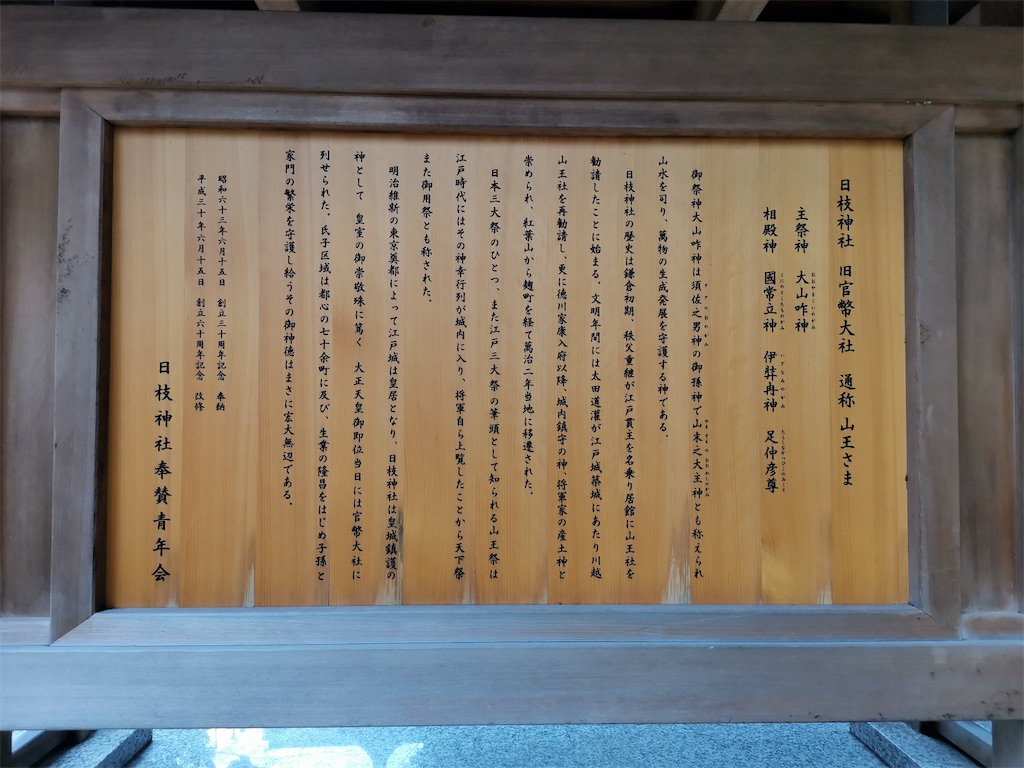 日枝神社　旧官幣大社　通称　山王さま
主祭神　大山咋神
おおやまくいのかみ
相殿神　國常立神　伊弉冉神　足仲彦尊
くにのとこたちのかみ　いざなみのかみ　たらしなかつひこのみこと
御祭神大山咋神は須佐之男神の御孫神で山末之大主神とも称えられ
すさのおのかみ　やますえのおおぬしのかみ
山水を司り、萬物の生成発展を守護する神である。
日枝神社の歴史は鎌倉初期、秩父重継が江戸貫主を名乗り居館に山王社を
勧請したことに始まる。文明年間には太田道灌が江戸城築城にあたり川越
山王社を再勧請し、更に徳川家康入府以降、城内鎮守の神、将軍家の産土神と
崇められ、紅葉山から麹町を経て萬治二年当地に移遷された。
日本三大祭のひとつ、また江戸三大祭の筆頭として知られる山王祭は
江戸時代にはその神幸行列が城内に入り、将軍自ら上覧したことから天下祭
また御用祭とも称された。
明治維新の東京奠都によって江戸城は皇居となり、日枝神社は皇城鎮護の
神として　皇室の御崇敬殊に篤く　大正天皇御即位当日には官幣大社に
列せられた。氏子区域は都心の七十余町に及び、生業の隆昌をはじめ子孫と
家門の繁栄を守護し給うその御神徳はまさに宏大無辺である。
昭和六十三年六月十五日　創立三十周年記念　奉納
平成三十年六月十五日　創立六十周年記念　改修
日枝神社奉賛青年会